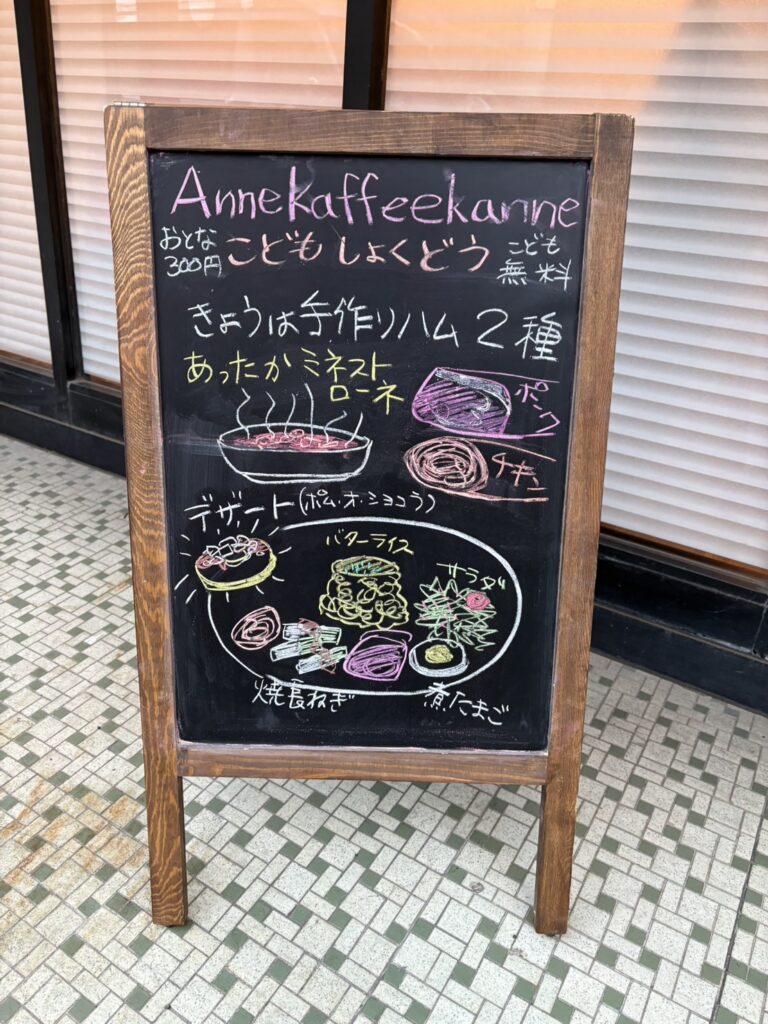 Annekaffeekanne
おとな
300円
こどもしょくどう
こども
無料
きょうは手作りハム2種
あったかミネスト
ローネ
ポンク
チキン
デザート(ポム・オ・ショコラ)
バターライス
サラダ
焼長ねぎ
煮たまご